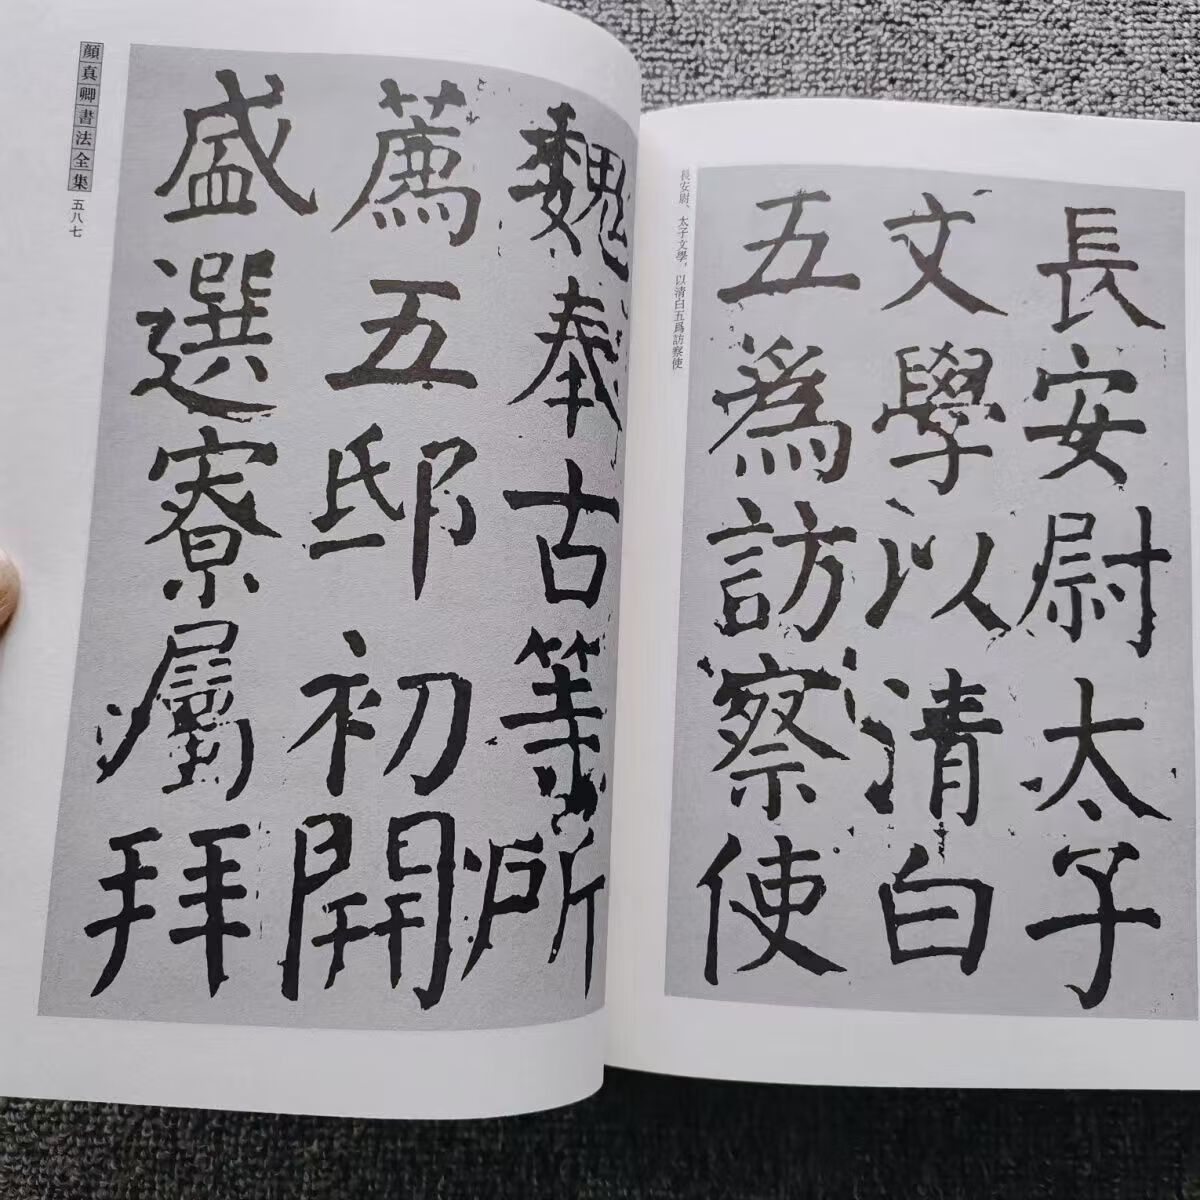 長安尉太子
文學以清白
五爲訪察使
長安尉、太子文學，以清白五爲訪察使
魏奉古等所
薦五邸初開
盛選寮屬拜
顔真卿書法全集
五八七